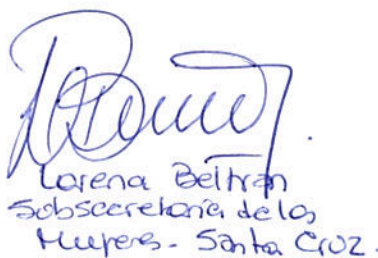 Lorena Beltrán
Subsecretaria de las
Mujeres - Santa Cruz.